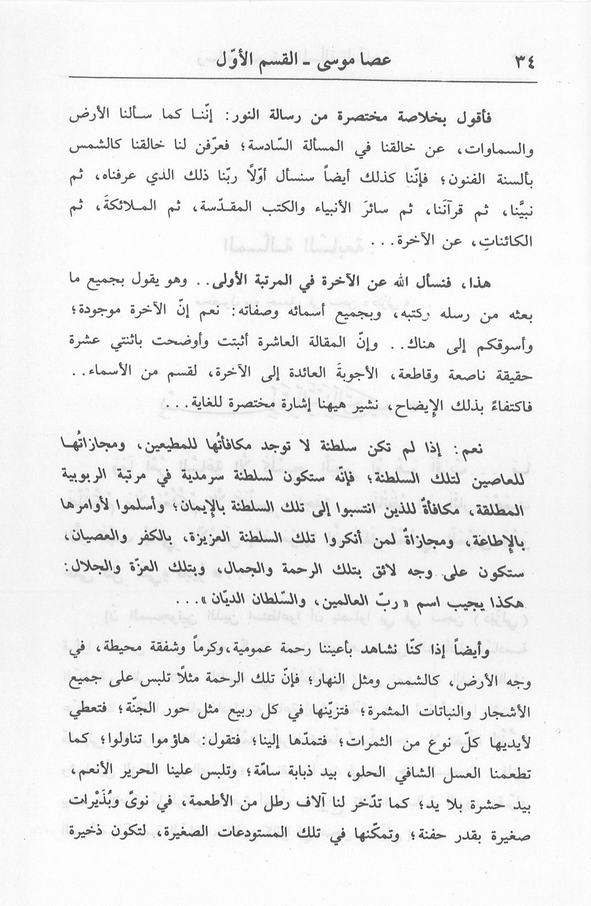 ٣٤ عصا موسى ـ القسم الأوّل
فأقول بخلاصة مختصرة من رسالة النور: إنّنا كما سألنا الأرض
والسماوات، عن خالقنا في المسألة السّادسة؛ فعرّفن لنا خالقنا كالشمس
بألسنة الفنون؛ فإنّنا كذلك أيضاً سنسأل أوّلاً ربّنا ذلك الذي عرفناه، ثم
نبيَّنا، ثم قرآنَنا، ثم سائرَ الأنبياء والكتب المقدّسة، ثم الملائكةَ، ثم
الكائناتِ، عن الآخرة...
هذا، فنسأل الله عن الآخرة في المرتبة الأولى.. وهو يقول بجميع ما
بعثه من رسله وكتبه، وبجميع أسمائه وصفاته: نعم إنّ الآخرة موجودة؛
وأسوقكم إلى هناك.. وإنّ المقالة العاشرة أثبتت وأوضحت باثنتي عشرة
حقيقة ناصعة وقاطعة، الأجوبةَ العائدة إلى الآخرة، لقسم من الأسماء..
فاكتفاءً بذلك الإيضاح، نشير هيهنا إشارة مختصرة للغاية...
نعم: إذا لم تكن سلطنة لا توجد مكافأتُها للمطيعين، ومجازاتُها
للعاصين لتلك السلطنة؛ فإنّه ستكون لسلطنة سرمدية في مرتبة الربوبية
المطلقة، مكافأةٌ للذين انتسبوا إلى تلك السلطنة بالإيمان؛ وأسلموا لأوامرها
بالإطاعة، ومجازاةٌ لمن أنكروا تلك السلطنة العزيزة، بالكفر والعصيان،
ستكون على وجه لائق بتلك الرحمة والجمال، وبتلك العزّة والجلال:
هكذا يجيب اسم «ربّ العالمين، والسّلطان الديّان»...
وأيضاً إذا كنّا نشاهد بأعيننا رحمة عمومية،وكرماً وشفقة محيطة، في
وجه الأرض، كالشمس ومثل النهار؛ فإنّ تلك الرحمة مثلاً تلبس على جميع
الأشجار والنباتات المثمرة؛ فتزيّنها في كل ربيع مثل حور الجنّة؛ فتعطي
لأيديها كلّ نوع من الثمرات؛ فتمدّها إلينا؛ فتقول: هاؤموا تناولوا؛ كما
تطعمنا العسل الشافي الحلو، بيد ذبابة سامّة؛ وتلبس علينا الحرير الأنعم،
بيد حشرة بلا يد؛ كما تدّخر لنا آلاف رطل من الأطعمة، في نوىً وبُذَيْرات
صغيرة بقدر حفنة؛ وتمكّنها في تلك المستودعات الصغيرة، لتكون ذخيرة